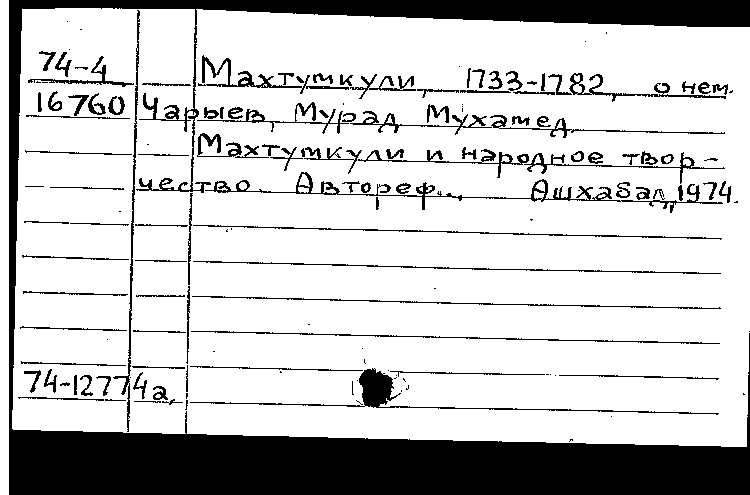 74-4 Махтумкули, 1733-1782, о нем.
16760 Чарыев, Мурад Мухамед.
Махтумкули и народное твор-
чество. Автореф..., Ашхабад, 1974.
74-12774а.